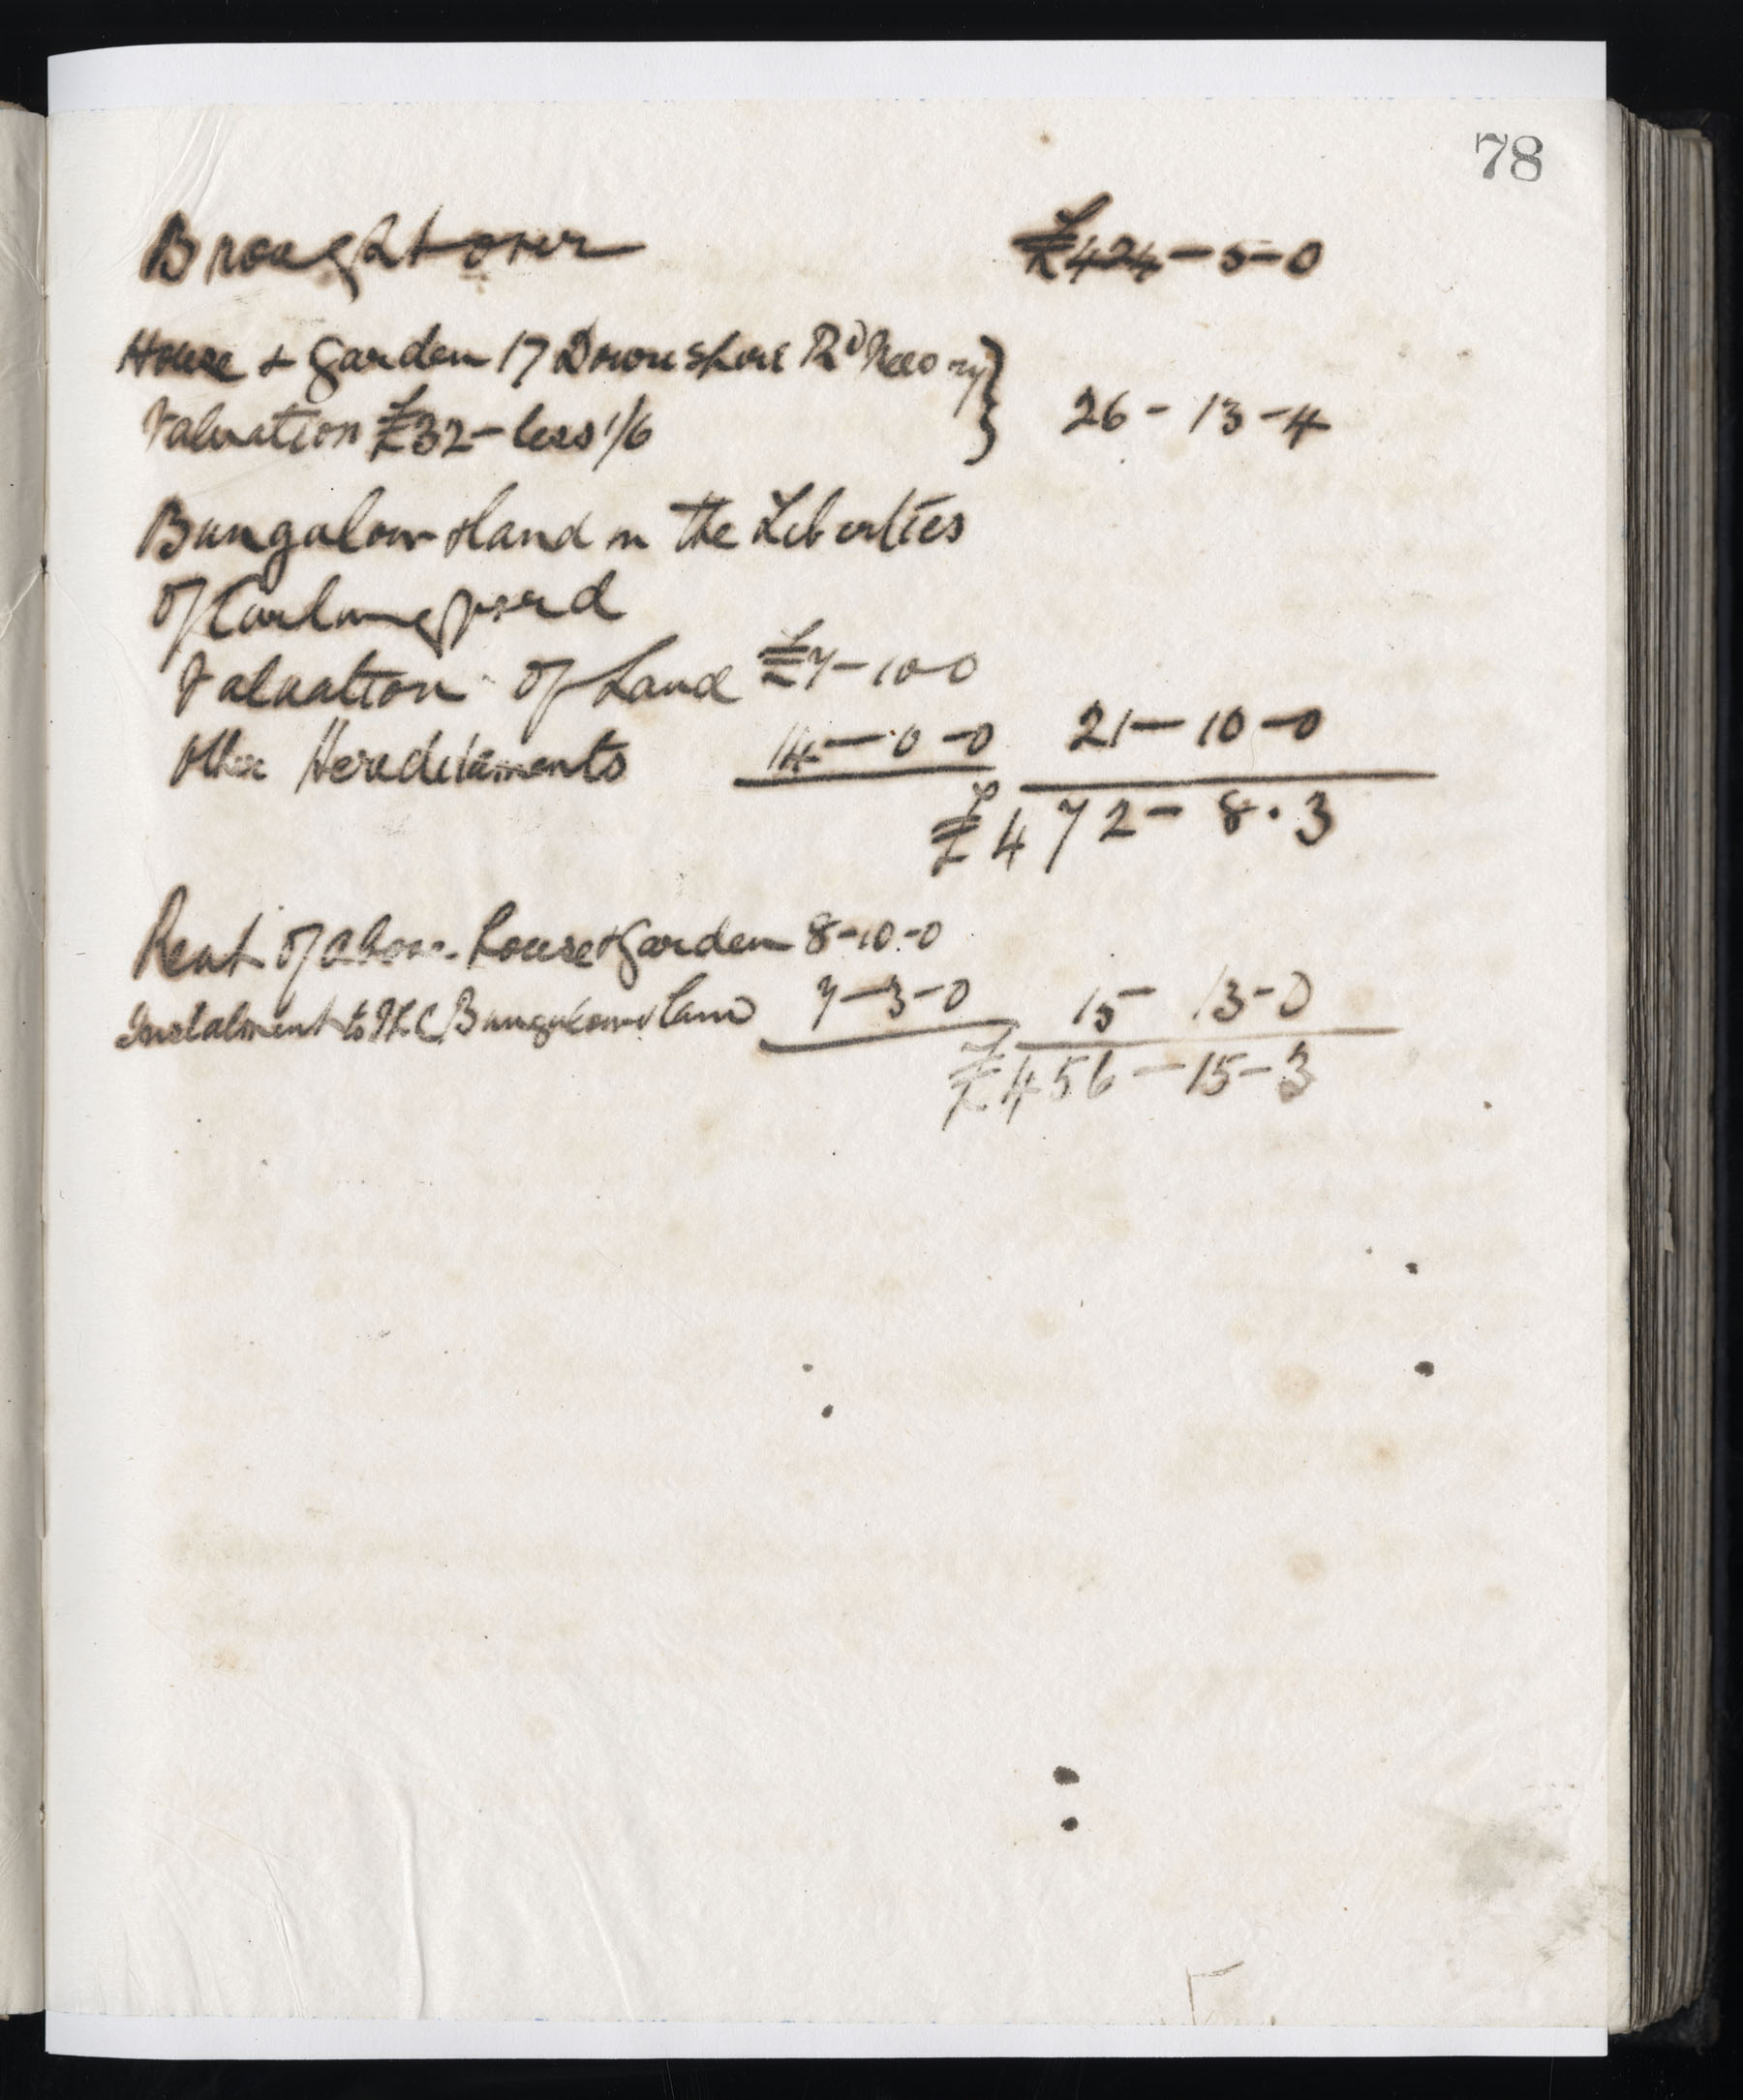 78
Brought over £424-5-0
House & Garden 17 Downshire Rd Newry
Valuation £32- less 1/6 } 26-13-4
Bungalow & land in the Liberties
of Carlingford
Valuation of Land £7-10-0
Other Hereditaments 14-0-0 21-10-0
£472-8.3
Rent of above house & garden 8-10-0
Instalment to I L C Bungalow & Land 7-3-0 15 13-0
£456-15-3